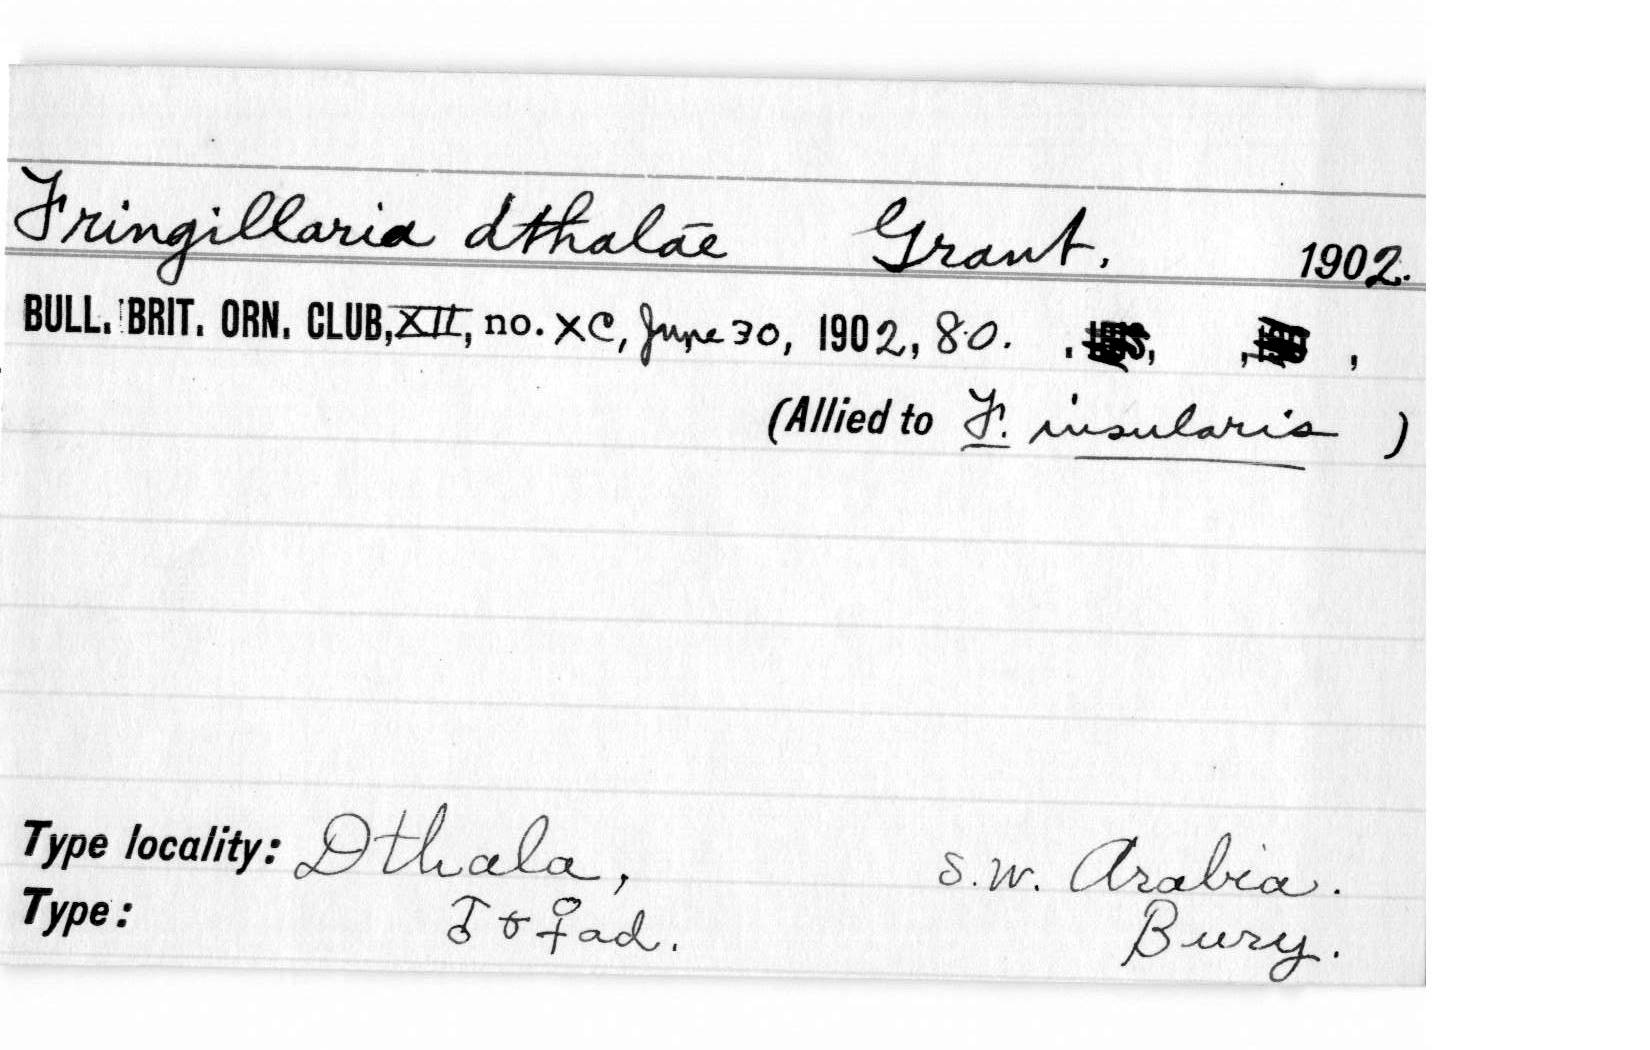 Fringillaria dthalae Grant. 1902.
BULL. BRIT. ORN. CLUB, XII, no. XC, June 30, 1902, 80. . , , ,
(Allied to F. insularis )
Type locality: Dthala, S.W. Arabia.
Type: ♂ & ♀ ad. Bury.